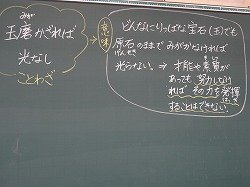 みが
玉磨かざれば
光なし
ことわざ
意味
どんなにりっぱな宝石(玉)でも
原石のままでみがかなければ
げんせき
光らない。⇒才能や素質が
そしつ
あっても努力しなけ
れば その力を発揮
はっき
することはできない。